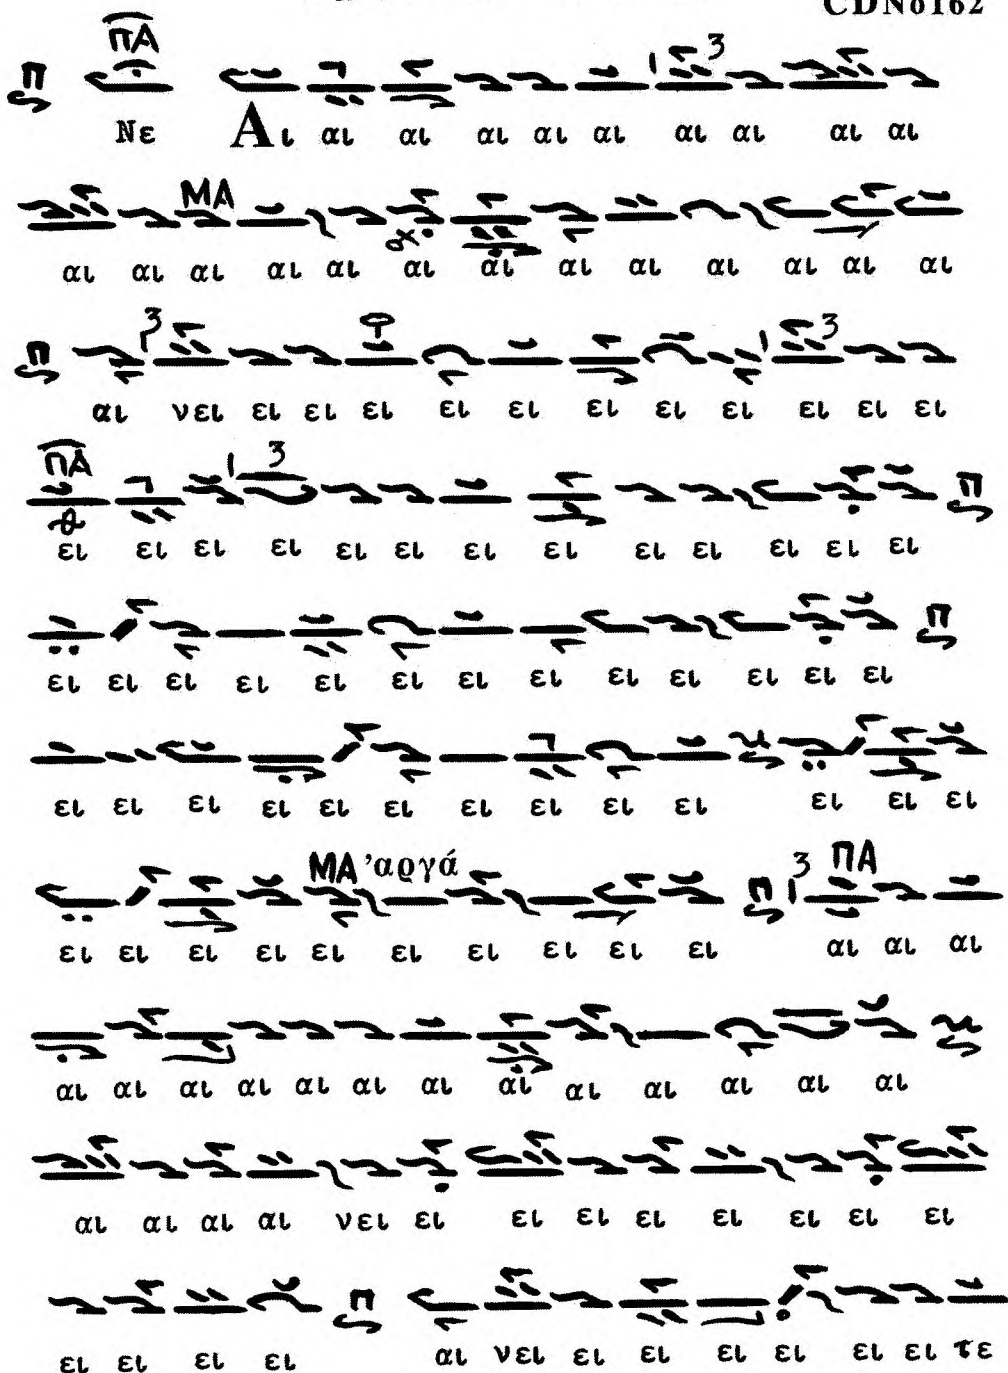 CDNo162
ΠΑ 3
Π
Νε Αι αι αι αι αι αι αι αι αι αι
ΜΑ
αι αι αι αι αι αι αι αι αι αι αι αι αι
Π 3 3
αι νει ει ει ει ει ει ει ει ει ει ει ει
ΠΑ 3 Π
ει ει ει ει ει ει ει ει ει ει ει ει ει
Π
ει ει ει ει ει ει ει ει ει ει ει ει ει
ει ει ει ει ει ει ει ει ει ει ει ει ει
ΜΑ 'αργά Π 3 ΠΑ
ει ει ει ει ει ει ει ει ει ει αι αι αι
αι αι αι αι αι αι αι αι αι αι αι αι αι
αι αι αι αι νει ει ει ει ει ει ει ει ει
Π
ει ει ει ει αι νει ει ει ει ει ει ει τε